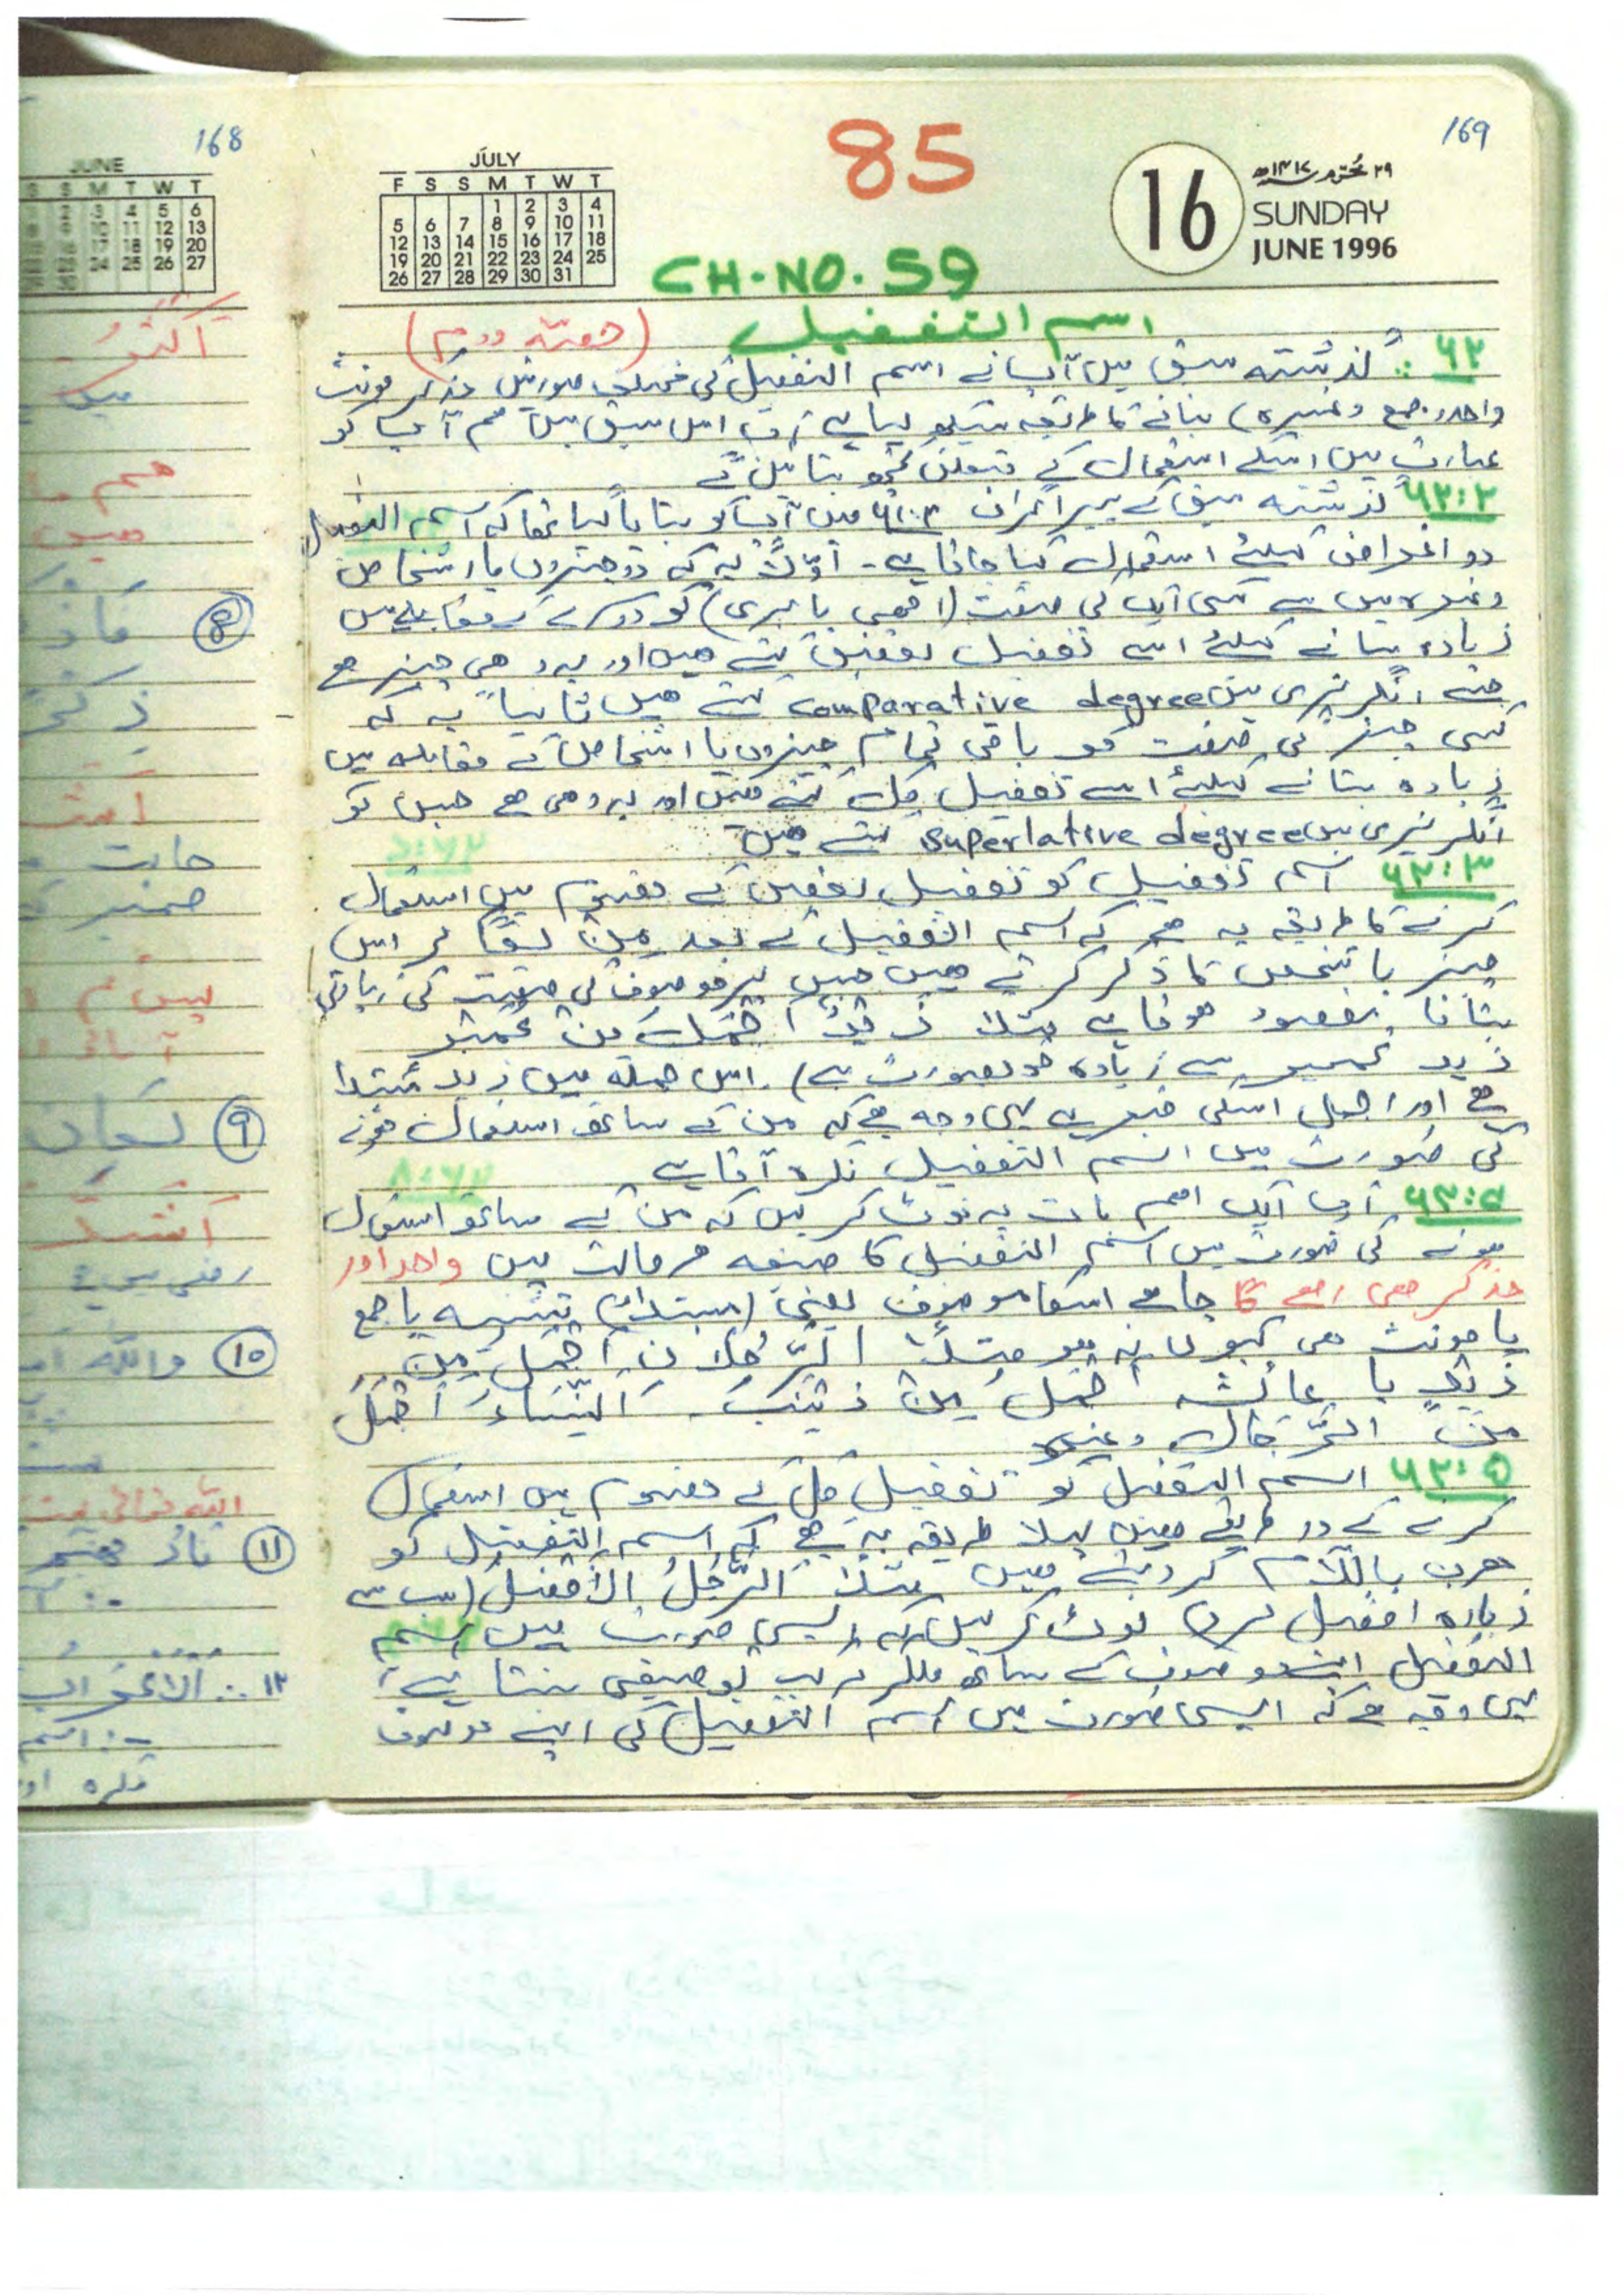 168
JUNE
S S M T W T
5 6
10 11 12 13
17 18 19 20
24 25 26 27
169
85
JULY
F S S M T W T
1 2 3 4
5 6 7 8 9 10 11
12 13 14 15 16 17 18
19 20 21 22 23 24 25
26 27 28 29 30 31
16
۲۹ محرم ۱۴۱۷ھ
SUNDAY
JUNE 1996
CH. NO. 59
اسم التفضیل (حصّہ دوم)
گذشتہ سبق میں آپ نے اسم التفضیل کی مختلف صورتیں مذکر مونث
واحد، جمع وغیرہ) بنانے کا طریقہ سیکھ لیا ہے اب اس سبق میں ہم آپ کو
عبارت میں اسکے استعمال کے متعلق کچھ بتائیں گے
۶۲:۲ گذشتہ سبق کے پیراگراف میں آپ کو بتایا گیا تھا کہ اسم التفضیل
دو اغراض کیلئے استعمال کیا جاتا ہے۔ اوّلاً یہ کہ دو چیزوں یا اشخاص
وغیرہ میں سے کسی ایک کی صفت (اچھی یا بری) کو دوسرے کے مقابلے میں
زیادہ بتانے کیلئے اسے تفضیل بعض کہتے ہیں اور یہ وہی چیز ہے
جسے انگریزی میں comparative degree کہتے ہیں ثانیاً یہ کہ
کسی چیز کی صفت کو باقی تمام چیزوں یا اشخاص کے مقابلہ میں
زیادہ بتانے کیلئے اسے تفضیل کل کہتے ہیں اور یہ وہی ہے جس کو
انگریزی میں superlative degree کہتے ہیں
۶۲:۳ اسم تفضیل کو تفضیل بعض کے مفہوم میں استعمال
کرنے کا طریقہ یہ ہے کہ اسم التفضیل کے بعد مِنْ لگا کر اس
چیز یا شخص کا ذکر کرتے ہیں جس پر موصوف کی صفت کی زیادتی
بتانا مقصود ہوتا ہے مثلاً زَیْدٌ اَجْمَلُ مِنْ عُمَیْرٍ
زید عمیر سے زیادہ خوبصورت ہے) اس جملہ میں زید مبتدا
ہے اور اجمل اسکی خبر ہے یہی وجہ ہے کہ من کے ساتھ استعمال ہونے
کی صورت میں اسم التفضیل نکرہ آتا ہے
۶۲:۴ اب ایک اہم بات یہ نوٹ کریں کہ من کے ساتھ استعمال
ہونے کی صورت میں اسم التفضیل کا صیغہ ہر حالت میں واحد اور
مذکر ہی رہے گا چاہے اسکا موصوف یعنی (مبتدا) تثنیہ یا جمع
یا مونث ہی کیوں نہ ہو مثلاً اَلرَّجُلَانِ اَجْمَلُ مِنْ
زَیْدٍ یا عائشہ اجمل مِنْ زَیْنَبَ۔ اَلنِّسَاءُ اَجْمَلُ
مِنَ الرِّجَالِ وغیرہ
۶۲:۵ اسم التفضیل کو تفضیل کل کے مفہوم میں استعمال
کرنے کے دو طریقے ہیں پہلا طریقہ یہ ہے کہ اسم التفضیل کو
معرف باللام کر دیتے ہیں مثلاً اَلرَّجُلُ الْاَفْضَلُ (سب سے
زیادہ افضل مرد) نوٹ کریں کہ ایسی صورت میں اسم
التفضیل اپنے موصوف کے ساتھ ملکر مرکب توصیفی بنتا ہے
یہی وجہ ہے کہ ایسی صورت میں اسم التفضیل کی اپنے موصوف